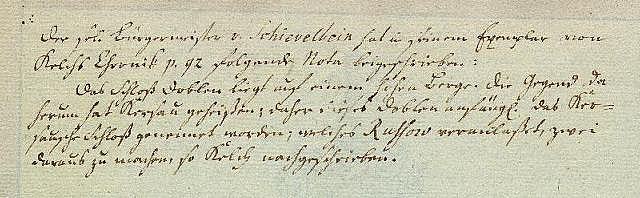 Der sel. Bürgermeister v. Schievelbein hat in seinem Exemplar von
Kelchs Chronik p. 92 folgende Nota beigeschrieben:
Das Schloß Doblen liegt auf einem hohen Berge. die Gegend da
herum hat Kersau geheißen; daher dieses Doblen anfängl. das Ker-
sausche Schloß genennet worden; welches Russow veranlaßet, zwei
daraus zu machen, so Kelch nachgeschrieben.